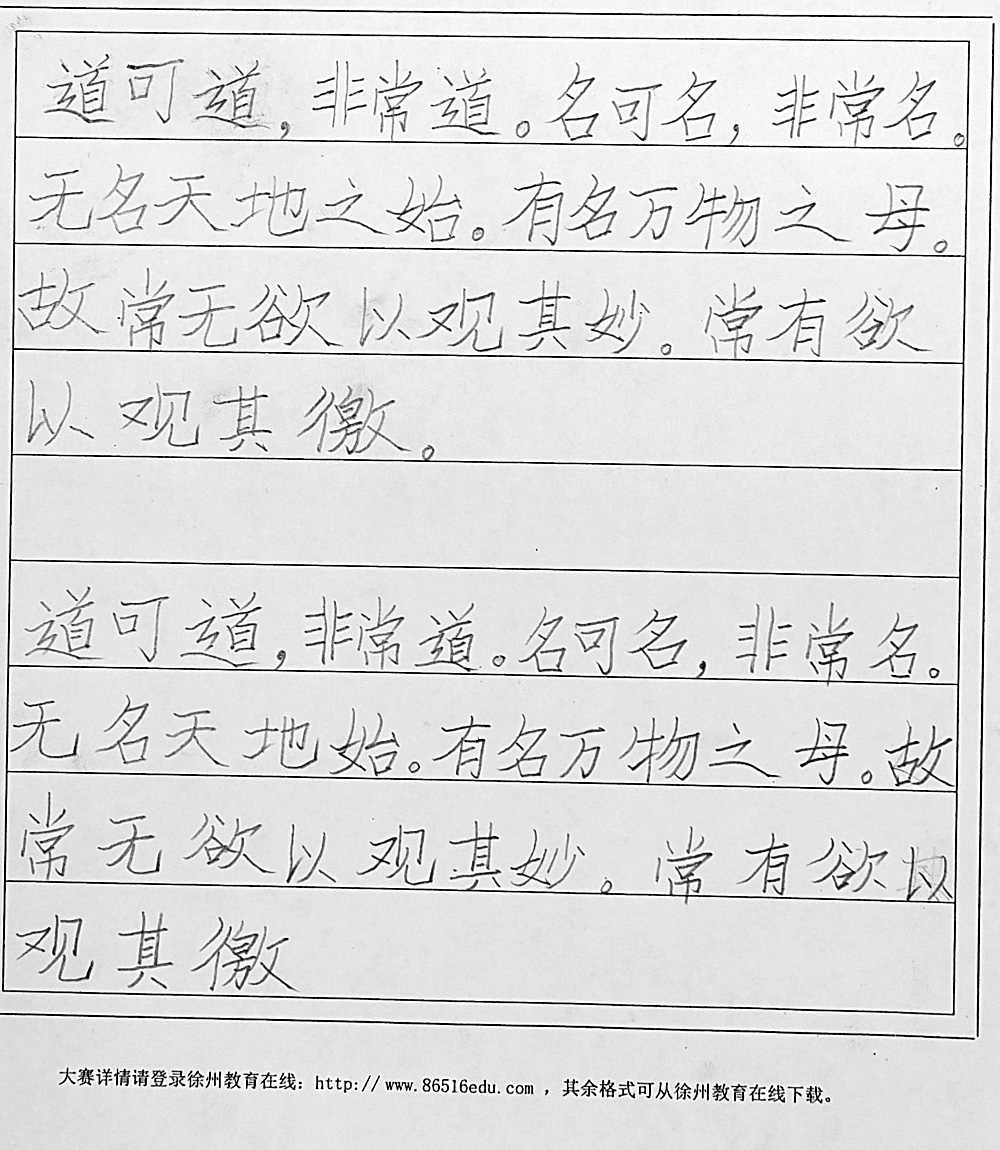 道可道，非常道。名可名，非常名。
无名天地之始。有名万物之母。
故常无欲以观其妙。常有欲
以观其徼。
道可道，非常道。名可名，非常名。
无名天地始。有名万物之母。故
常无欲以观其妙。常有欲以
观其徼
大赛详情请登录徐州教育在线：http://www.86516edu.com ，其余格式可从徐州教育在线下载。